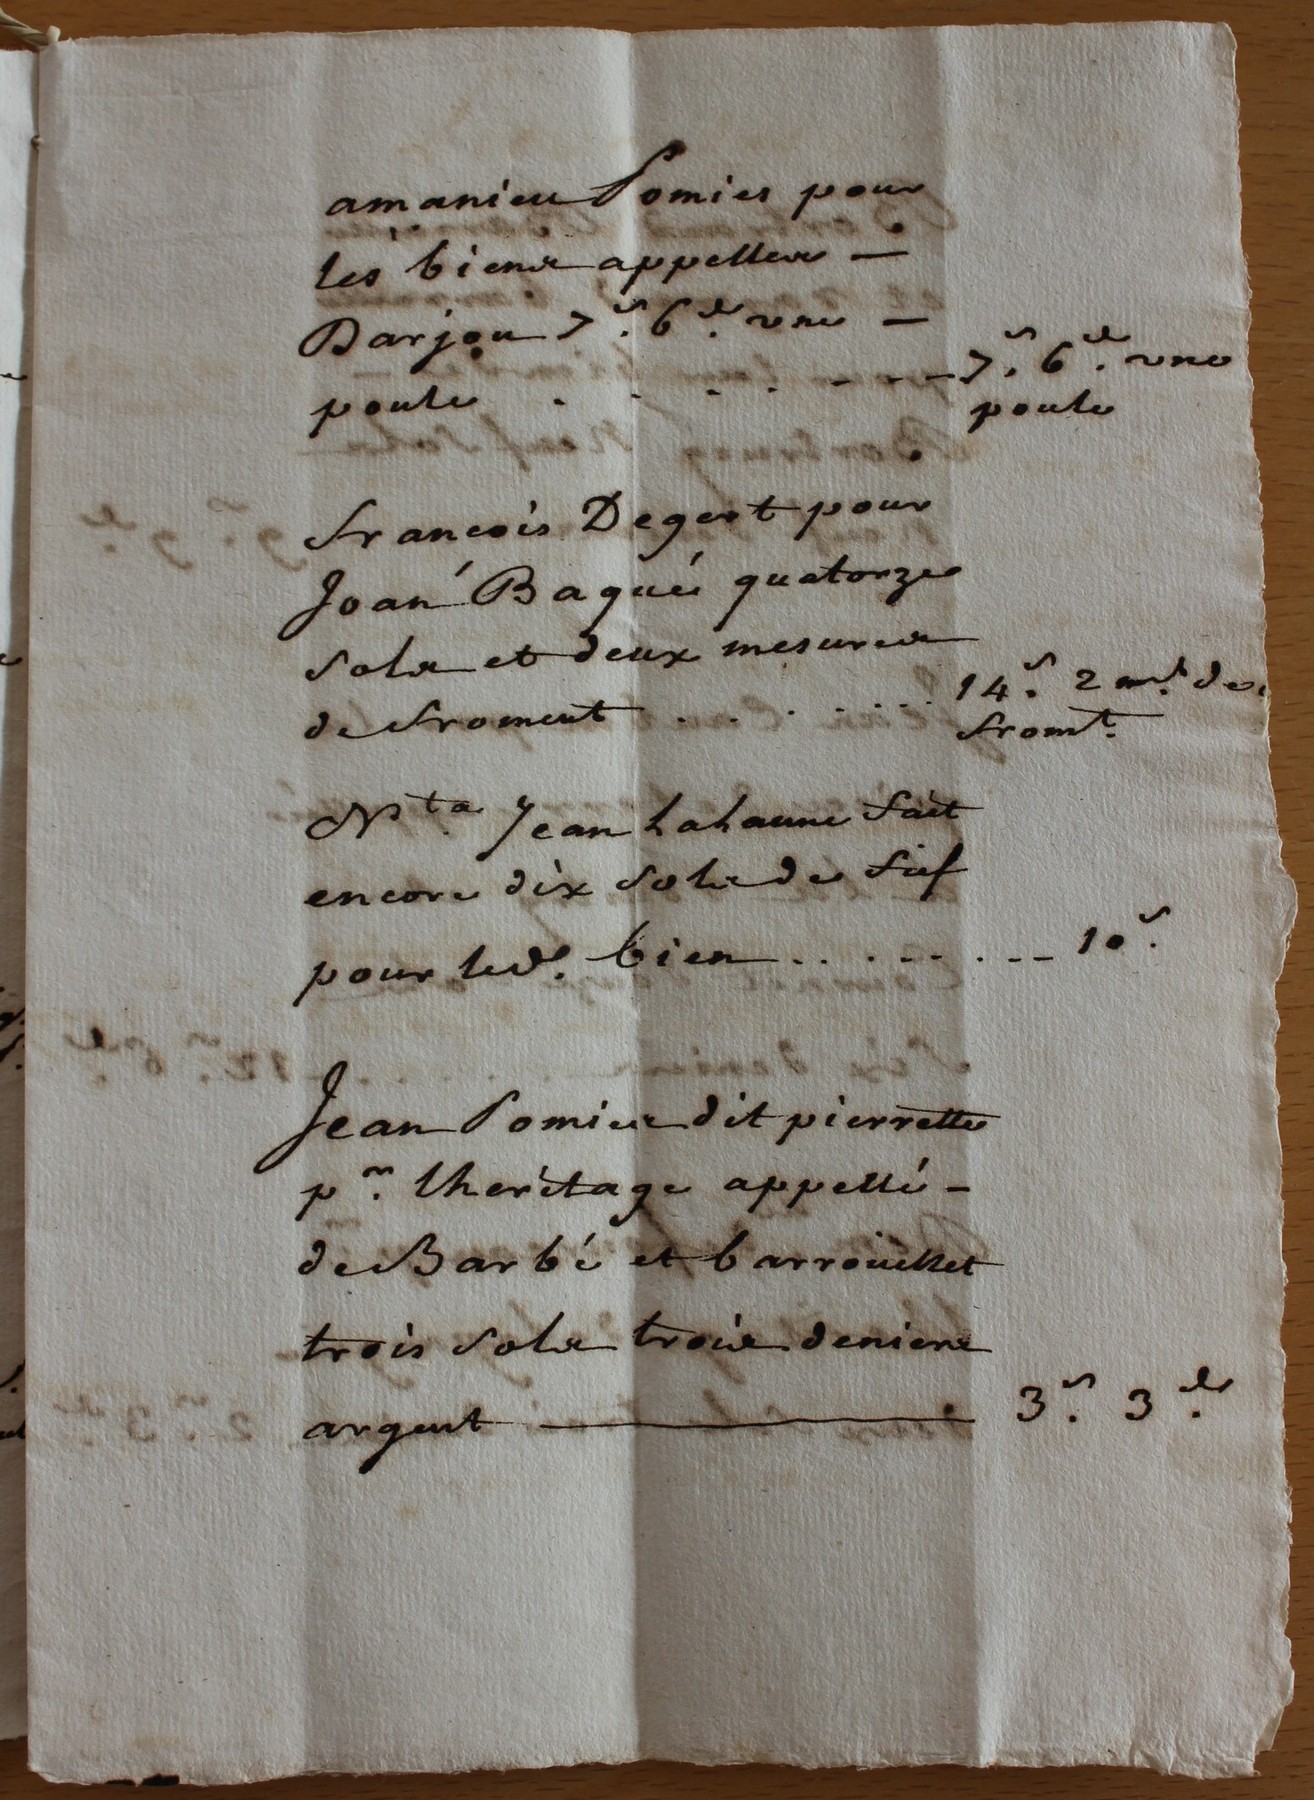 amanieu Pomies pour
les biens appelles —
Darjou 7s. 6d. une —
poule . . . . - - - 7s. 6d. une
poule
francois Degert pour
Joan Baqué quatorze
sols et deux mesures
de froment . . . . . . . 14s. 2 ms. de
fromt.
Nta. Jean Lahaune fait
encore dix sols de fief
pour led. bien . . . . . . . - - 10s.
Jean Pomies dit pierrette
pr. lheritage appellé -
de Barbé et barrouillet
trois sols trois deniers
argent —— 3s. 3d.